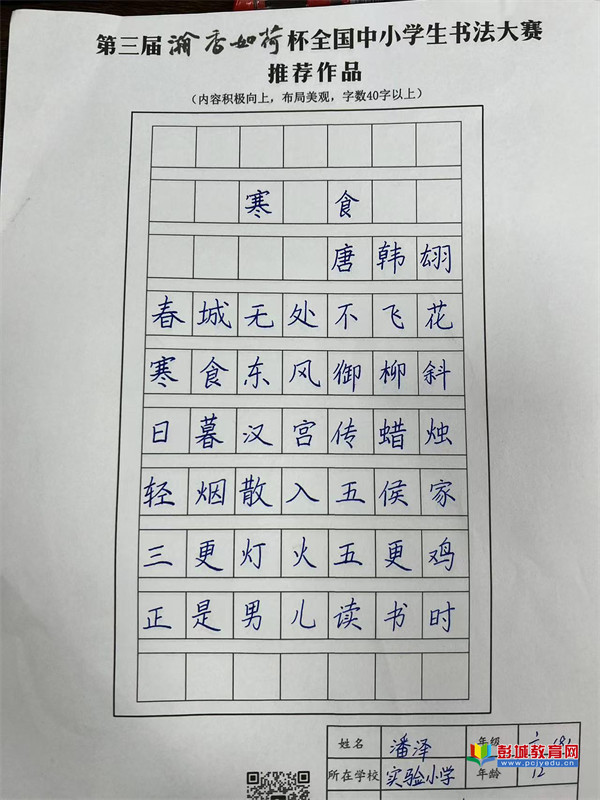 第三届瀚香如荷杯全国中小学生书法大赛
推荐作品
(内容积极向上,布局美观,字数40字以上)
寒食
唐韩翃
春城无处不飞花
寒食东风御柳斜
日暮汉宫传蜡烛
轻烟散入五侯家
三更灯火五更鸡
正是男儿读书时
姓名 潘泽 年级
所在学校 实验小学 年龄 12
彭城教育网
www.pcjyedu.cn